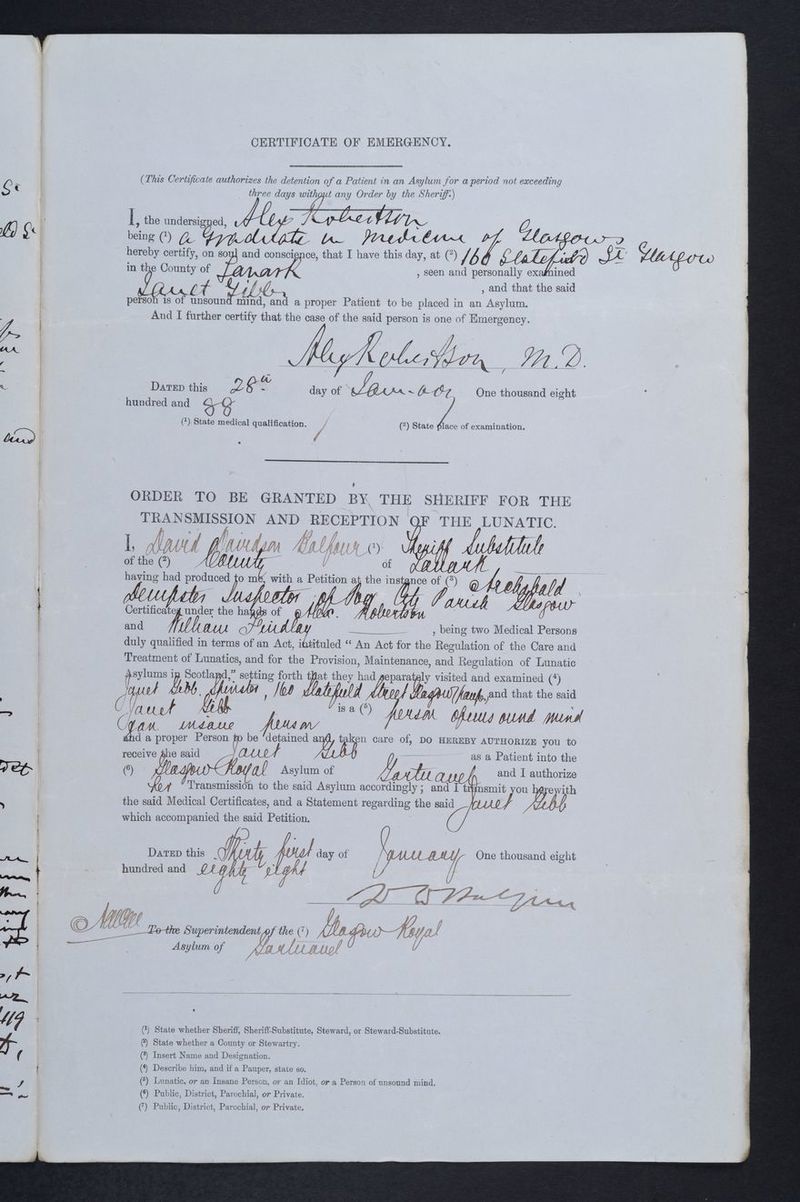 CERTIFICATE OF EMERGENCY.
(This Certificate authorizes the detention of a Patient in an Asylum for a period not exceeding
three days without any Order by the Sheriff.)
I, the undersigned, Alex Robertson
being (1) a Graduate in Medicine of Glasgow
hereby certify, on soul and conscience, that I have this day, at (2) 160 Slatefield St Glasgow
in the County of Lanark, seen and personally examined
Janet Gibb, and that the said
person is of unsound mind, and a proper Patient to be placed in an Asylum.
And I further certify that the case of the said person is one of Emergency.
Alex Robertson, M.D.
DATED this 28th day of January One thousand eight
hundred and 88
(1) State medical qualification. (2) State place of examination.
ORDER TO BE GRANTED BY THE SHERIFF FOR THE
TRANSMISSION AND RECEPTION OF THE LUNATIC.
I, David Davidson Balfour (1) Sheriff Substitute
of the (2) County of Lanark,
having had produced to me, with a Petition at the instance of (3) Archibald
Dempster Inspector of Poor City Parish Glasgow
Certificates under the hands of Alex. Robertson
and William Findlay, being two Medical Persons
duly qualified in terms of an Act, intituled “ An Act for the Regulation of the Care and
Treatment of Lunatics, and for the Provision, Maintenance, and Regulation of Lunatic
Asylums in Scotland,” setting forth that they had separately visited and examined (4)
Janet Gibb, Spinster, 160 Slatefield Street Glasgow, and that the said
Janet Gibb is a (5) person of unsound mind
an insane person
and a proper Person to be detained and taken care of, DO HEREBY AUTHORIZE you to
receive the said Janet Gibb as a Patient into the
(6) Glasgow Royal Asylum of Gartnavel and I authorize
her Transmission to the said Asylum accordingly; and I transmit you herewith
the said Medical Certificates, and a Statement regarding the said Janet Gibb
which accompanied the said Petition.
DATED this Thirty first day of January One thousand eight
hundred and eighty eight
D D Balfour
To the Superintendent of the (7) Glasgow Royal
Asylum of Gartnavel
(1) State whether Sheriff, Sheriff-Substitute, Steward, or Steward-Substitute.
(2) State whether a County or Stewartry.
(3) Insert Name and Designation.
(4) Describe him, and if a Pauper, state so.
(5) Lunatic, or an Insane Person, or an Idiot, or a Person of unsound mind.
(6) Public, District, Parochial, or Private.
(7) Public, District, Parochial, or Private.